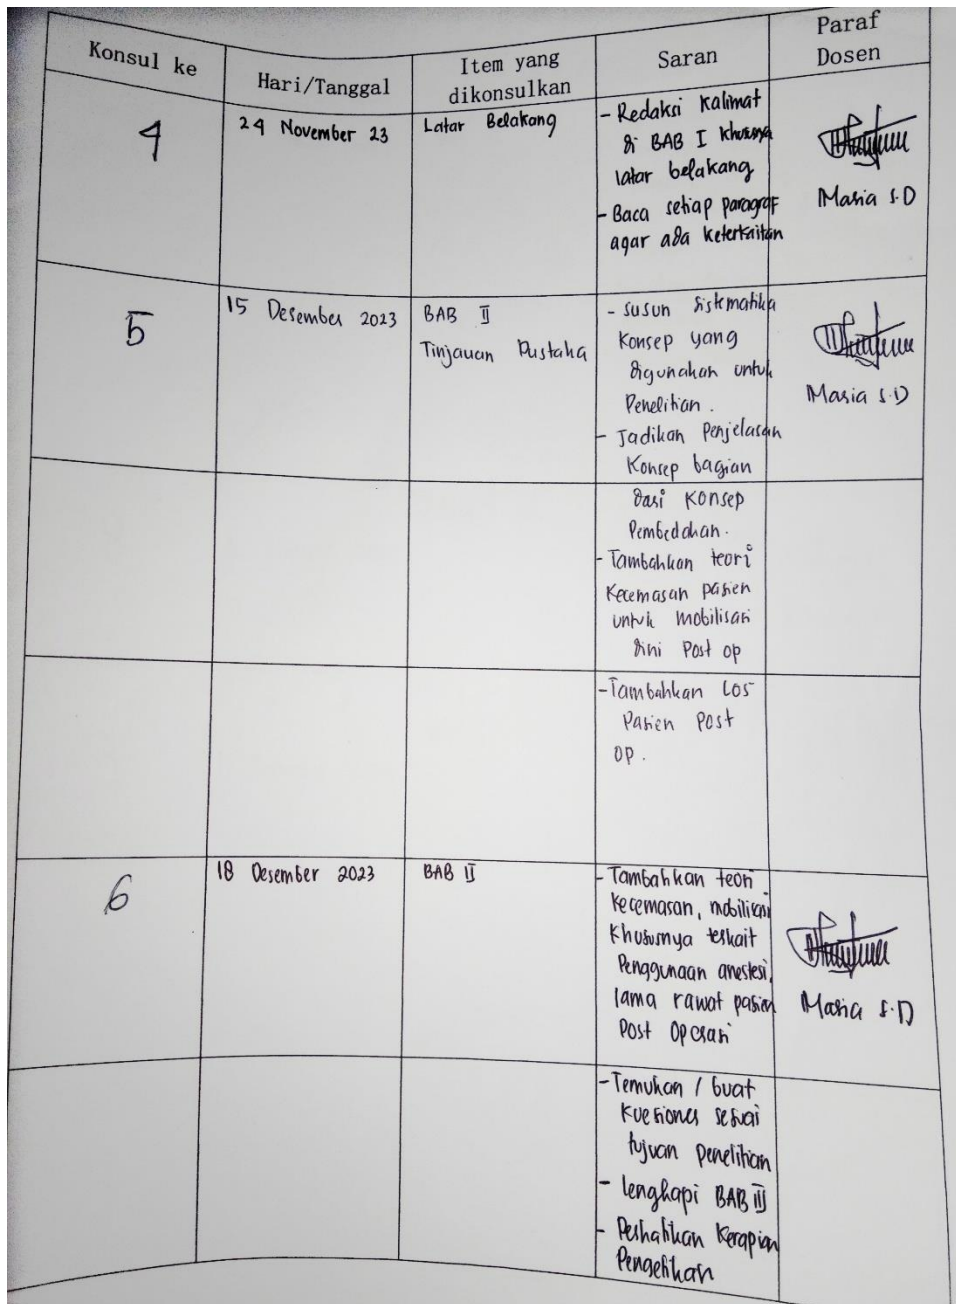 Konsul ke
Hari/Tanggal
Item yang
dikonsulkan
Saran
Paraf
Dosen
4
24 November 23
Latar Belakang
- Redaksi Kalimat
di BAB I khususnya
latar belakang
- Baca setiap paragraf
agar ada keterkaitan
Maria S.D
5
15 Desember 2023
BAB II
Tinjauan Pustaka
- Susun Sistematika
Konsep yang
digunakan untuk
Penelitian.
- Jadikan Penjelasan
Konsep bagian
dari Konsep
Pembedahan.
- Tambahkan teori
Kecemasan pasien
untuk mobilisasi
dini Post op
- Tambahkan Los
Pasien Post
OP.
Maria S.D
6
18 Desember 2023
BAB II
- Tambahkan teori
Kecemasan, mobilisasi
Khususnya terkait
Penggunaan anestesi,
lama rawat pasien
Post Operasi
- Temukan / buat
Kuesioner sesuai
tujuan penelitian
- lengkapi BAB III
- Perhatikan Kerapian
Pengetikan
Maria S.D